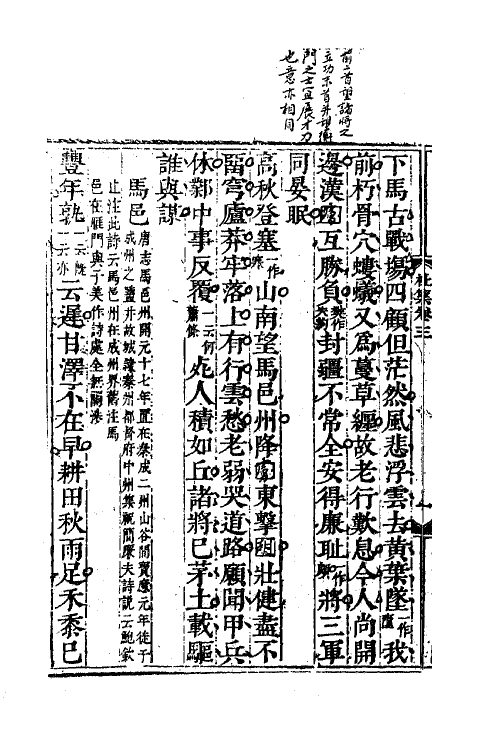 前二首望諸將之
立功不首并望衡
門之士宜展才力
也意亦相同
杜集卷三
下馬古戰場四顧但茫然風悲浮雲去黃葉墜一作墮我
前朽骨穴螻蟻又爲蔓草纏故老行歎息今人尚開
邊漢囪互勝負封疆不常全安得廉耻將三軍
同晏眠
高秋登塞一作寒山南望馬邑州降囪東擊囮壯健盡不
留穹廬莽牢落上有行雲愁老弱哭道路願聞甲兵
休鄴中事反覆一云何蕭條死人積如丘諸將已茅土載驅
誰與謀
馬邑唐志馬邑州開元十七年置在秦成二州山谷間寶應元年徙于
成州之鹽井故城隸秦州都督府中州集視簡康夫詩說云鮑欽
止注此詩云馬邑州在成州界舊注馬
邑在雁門與子美作詩處全無關涉
豐年孰一云既一云亦云遲甘澤不在早耕田秋雨足禾黍已